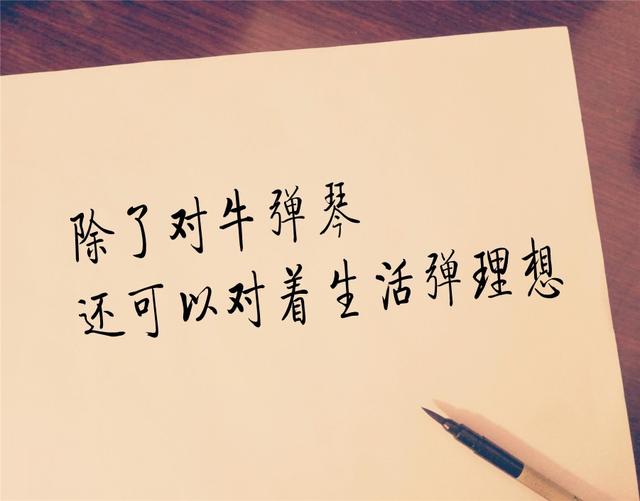 除了对牛弹琴
还可以对着生活弹理想